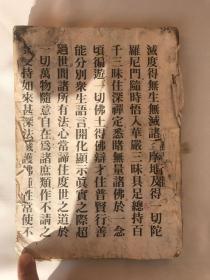 滅度得無生無滅諸三摩地及得一切陀
羅尼門隨時悟入華嚴三昧具足總持百
千三昧住深禪定悉睹無量諸佛於一念
頃徧遊一切佛土得佛辯才住普賢行善
能分別衆生語言開化顯示真實之際超
過世間諸所有法心常諦住度世之道於
一切萬物隨意自在爲諸庶類作不請之
受持如來甚深法藏護佛種性常使不